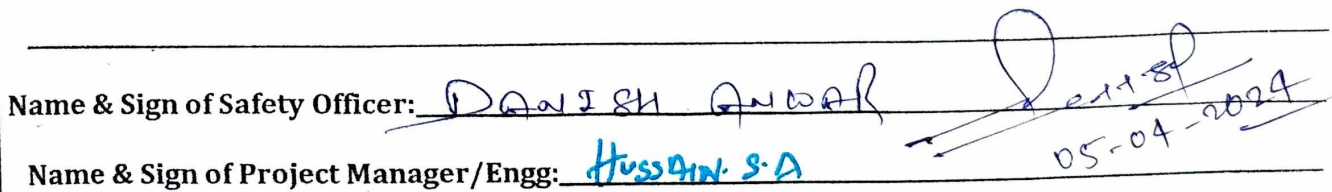 Name & Sign of Safety Officer: DANISH ANWAR
05-04-2024
Name & Sign of Project Manager/Engg: HUSSAIN. S.A